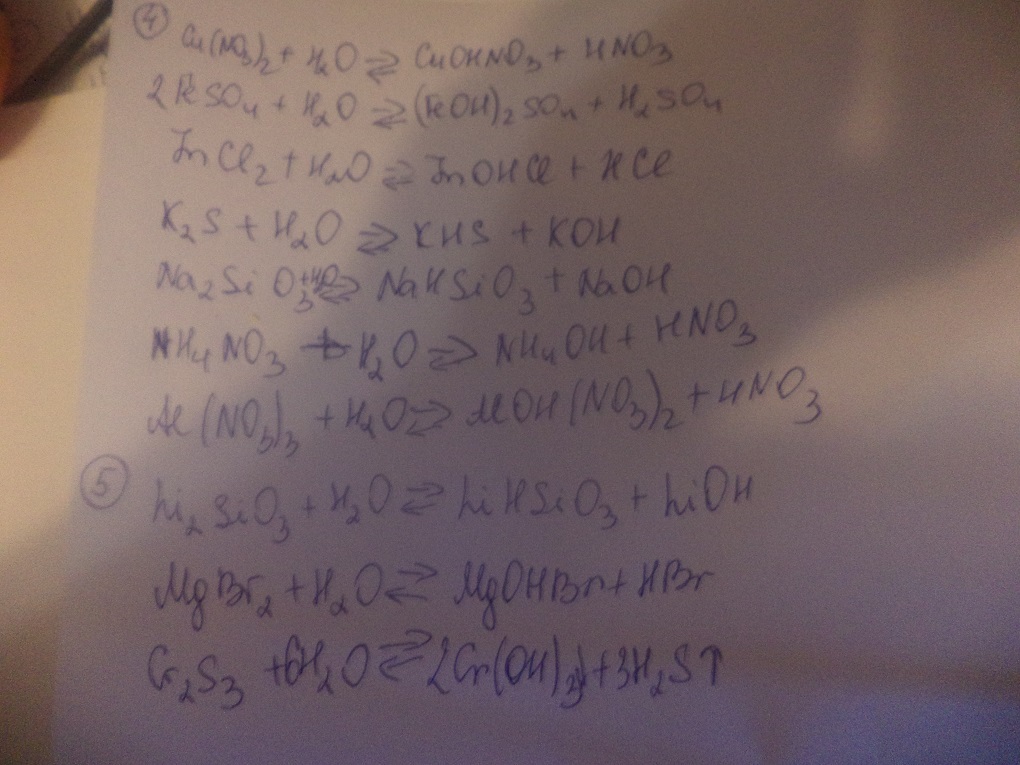 ④ Cu(NO₃)₂ + H₂O ⇄ CuOHNO₃ + HNO₃
2FeSO₄ + H₂O ⇄ (FeOH)₂SO₄ + H₂SO₄
ZnCl₂ + H₂O ⇄ ZnOHCl + HCl
K₂S + H₂O ⇄ KHS + KOH
Na₂SiO₃ + H₂O ⇄ NaHSiO₃ + NaOH
NH₄NO₃ + H₂O ⇄ NH₄OH + HNO₃
Al(NO₃)₃ + H₂O ⇄ AlOH(NO₃)₂ + HNO₃
⑤ Li₂SiO₃ + H₂O ⇄ LiHSiO₃ + LiOH
MgBr₂ + H₂O ⇄ MgOHBr + HBr
Cr₂S₃ + 6H₂O ⇄ 2Cr(OH)₃↓ + 3H₂S↑